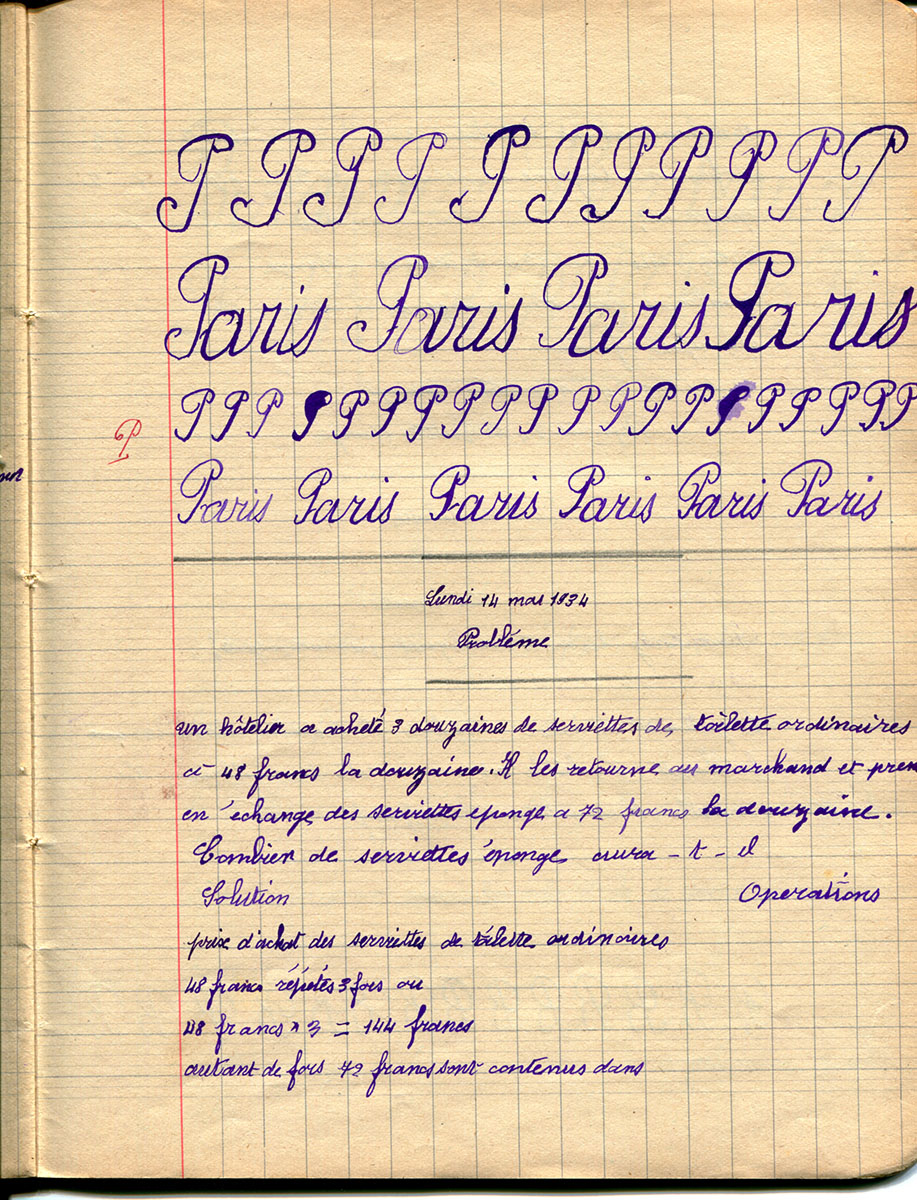 P P P P P P P P P P P
Paris Paris Paris Paris
P P P P P P P P P P P P P P P P P P P P
P
Paris Paris Paris Paris Paris Paris
Lundi 14 mai 1934
Problème
un hôtelier a acheté 3 douzaines de serviettes de toilette ordinaires
à 48 francs la douzaine. Il les retourne au marchand et pren
en échange des serviettes eponge a 72 francs la douzaine.
Combien de serviettes éponge aura - t - il
Solution Operations
prix d'achat des serviettes de toilette ordinaires
48 francs répétés 3 fois ou
48 francs × 3 = 144 francs
autant de fois 72 francs sont contenus dans